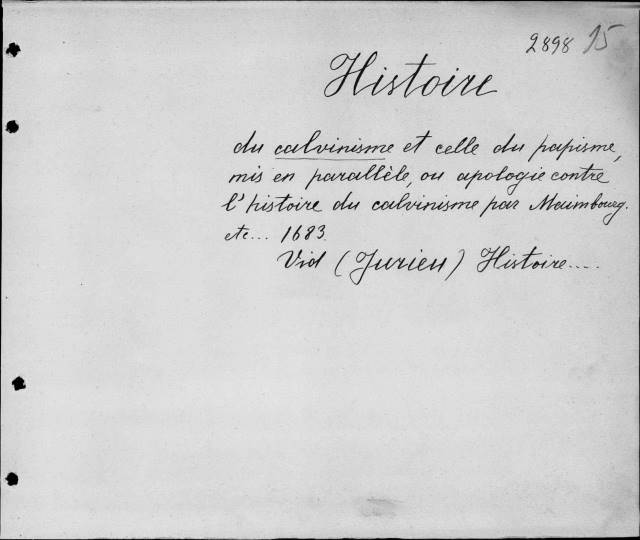 2898 15
Histoire
du calvinisme et celle du papisme,
mis en parallèle, ou apologie contre
l'histoire du calvinisme par Maimbourg.
etc... 1683.
Vid (Jurieu) Histoire....